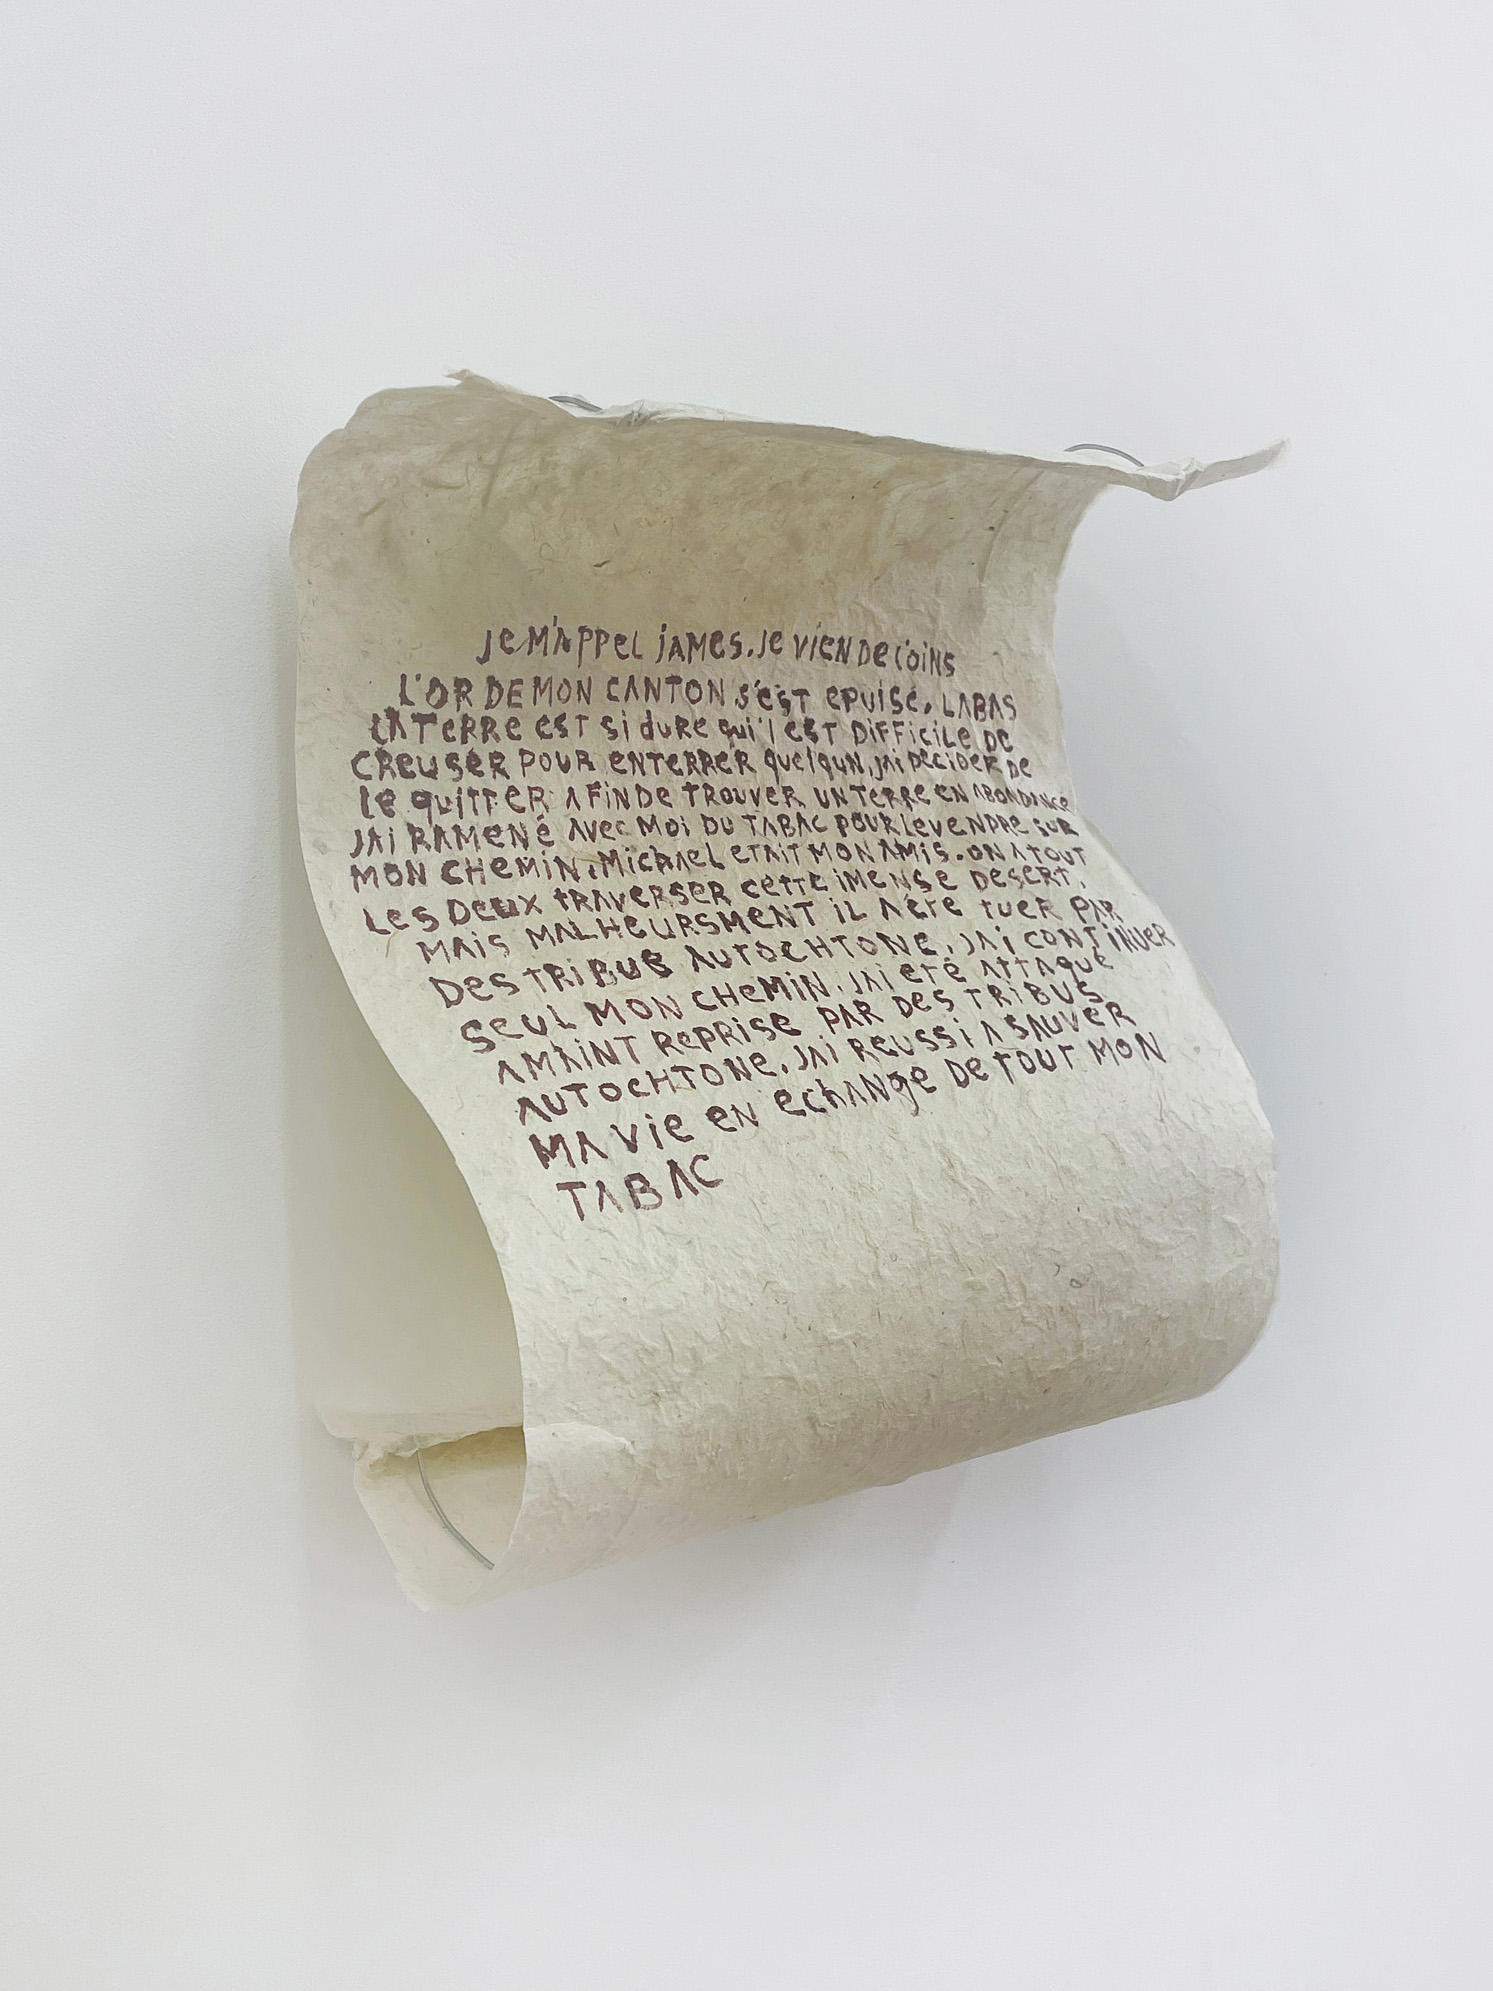 Je M'APPEL JAMES. Je VIEN De L'OINS
L'OR DE MON CANTON S'EST EPUISE. LABAS
LA TeRRe EST Si duRe qui'l EST DiFFiCiLe De
CREUSER POUR ENTERRER quelqun, jAi DeCiDER De
Le quiTTER A FiN De TROUVER UN TeRRe EN ABONDANCE
JAi RAMENé AVEC Moi DU TABAC POUR Le VENDRE SUR
MON CHEMiN. MiChAeL ETAIT MON AMiS. ON A TOUT
LES DEUX tRAVERSER CETTE iMENSE DESERT.
MAiS MALHEURSMENT iL A éTé TUER PAR
DES TRIBUS AUTOCHTONE. JAi CONTiNUER
SEUL MON CHEMIN. JAi éTé ATTAQUé
AMAINT REPRiSe PAR DES TRiBUS
AUTOCHTONE. JAi REUSSi A SAUVER
MA ViE EN EChANgE De TOUT MON
TABAC